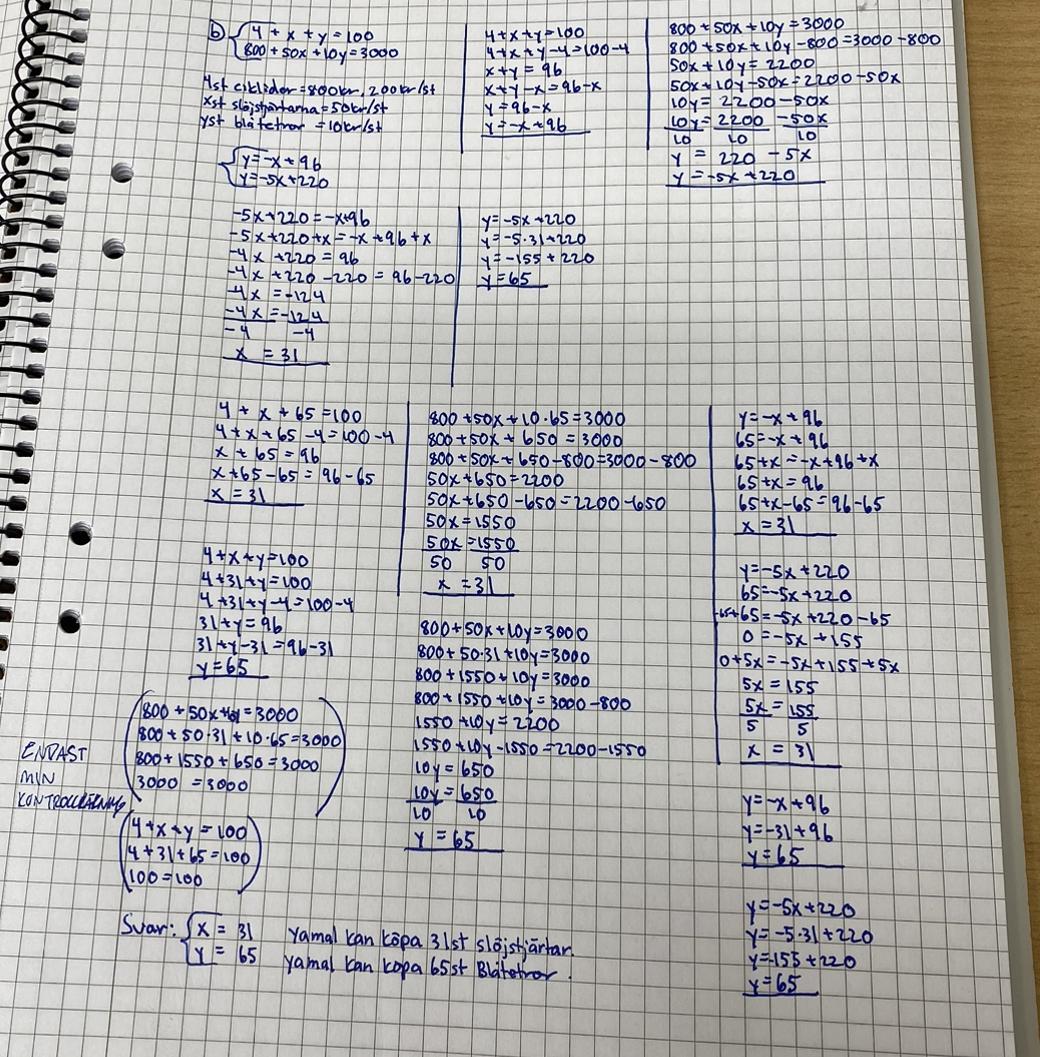 b) 4 + x + y = 100
800 + 50x + 10y = 3000
4st ciklider = 800kr, 200kr/st
xst slöjstjärtarna = 50kr/st
yst blåtetror = 10kr/st
y = -x + 96
y = -5x + 220
4 + x + y = 100
4 + x + y - 4 = 100 - 4
x + y = 96
x + y - x = 96 - x
y = 96 - x
y = -x + 96
800 + 50x + 10y = 3000
800 + 50x + 10y - 800 = 3000 - 800
50x + 10y = 2200
50x + 10y - 50x = 2200 - 50x
10y = 2200 - 50x
10y = 2200 - 50x
10 10 10
y = 220 - 5x
y = -5x + 220
-5x + 220 = -x + 96
-5x + 220 + x = -x + 96 + x
-4x + 220 = 96
-4x + 220 - 220 = 96 - 220
-4x = -124
-4x = -124
-4 -4
x = 31
y = -5x + 220
y = -5·31 + 220
y = -155 + 220
y = 65
4 + x + 65 = 100
4 + x + 65 - 4 = 100 - 4
x + 65 = 96
x + 65 - 65 = 96 - 65
x = 31
4 + x + y = 100
4 + 31 + y = 100
4 + 31 + y - 4 = 100 - 4
31 + y = 96
31 + y - 31 = 96 - 31
y = 65
800 + 50x + 10y = 3000
800 + 50·31 + 10·65 = 3000
800 + 1550 + 650 = 3000
3000 = 3000
ENDAST
MIN
KONTROLLRÄKNING
4 + x + y = 100
4 + 31 + 65 = 100
100 = 100
800 + 50x + 10·65 = 3000
800 + 50x + 650 = 3000
800 + 50x + 650 - 800 = 3000 - 800
50x + 650 = 2200
50x + 650 - 650 = 2200 - 650
50x = 1550
50x = 1550
50 50
x = 31
800 + 50x + 10y = 3000
800 + 50·31 + 10y = 3000
800 + 1550 + 10y = 3000
800 + 1550 + 10y = 3000 - 800
1550 + 10y = 2200
1550 + 10y - 1550 = 2200 - 1550
10y = 650
10y = 650
10 10
y = 65
y = -x + 96
65 = -x + 96
65 + x = -x + 96 + x
65 + x = 96
65 + x - 65 = 96 - 65
x = 31
y = -5x + 220
65 = -5x + 220
-65 + 65 = -5x + 220 - 65
0 = -5x + 155
0 + 5x = -5x + 155 + 5x
5x = 155
5x = 155
5 5
x = 31
y = -x + 96
y = -31 + 96
y = 65
y = -5x + 220
y = -5·31 + 220
y = -155 + 220
y = 65
Svar: x = 31 Yamal kan köpa 31st slöjstjärtar.
y = 65 Yamal kan köpa 65st Blåtetror.